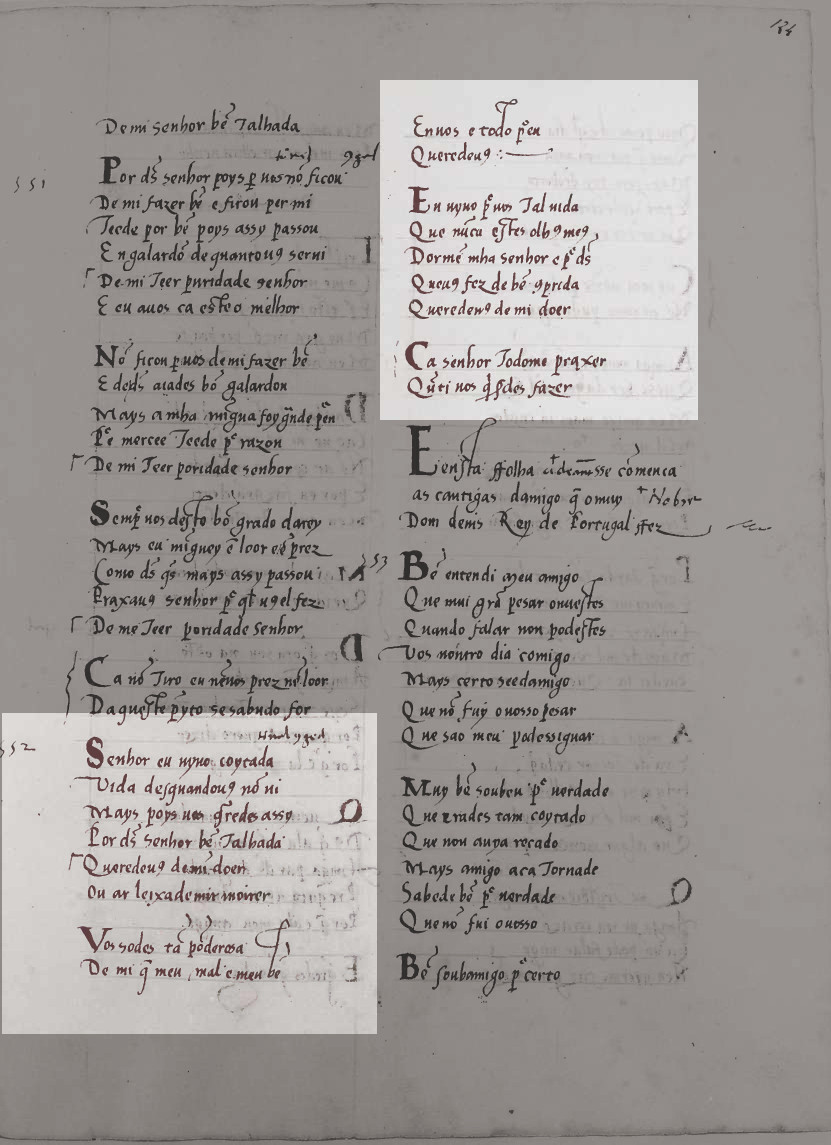 De mi senhor bẽ Talhada
551
Por ds̃ senhor poys p̱ uos nõ ficou
De mi fazer bẽ e ficou per mi
Teede por bẽ poys assy passou
En galardõ de quantoug serui
De mi Teer puridade senhor
E eu auos ca esteo melhor
Nõ ficou p̱ uos de mi fazer bẽ
E deds̃ aiades bõ galardon
Mays a mha migua foy gñde pẽn
Pr̃ mercee Teede pr̃ razon
De mi Teer poridade senhor
Semp̃ uos desto bõ grado darey
Mays eu miguey ẽ loor e ẽ prez
Como ds̃ q̃s mays assy passou
Praxaug senhor pr̃ ql̃ ugel fez
De me Teer poridade senhor
Ca nõ Tiro eu nẽuos prez nẽ loor
Daqueste pyto se sabudo for
552
Senhor eu uyuo coytada
Vida desquandoug nõ ui
Mays poys uos q̃redes assy
Por ds̃ senhor bẽ Talhada
Queredeug de mi doer
Ou ar leixademir moirer
Vos sodes tã poderosa
De mi q̃ meu mal e meu bẽ
En uos e todo pr̃ en
Queredeug :~
En uyuo pr̃ uos Tal uida
Que nũca estes olhg meg
Dormẽ mha senhor e pr̃ ds̃
Queug fez de bẽ gprida
Queredeug de mi doer
Ca senhor Todome praxer
Qnti uos q̃ p̱des fazer
E en sta ffolha adeãnsse comença
as cantigas damigo q̃ o muy Nobre
Dom denis Rey de Portugal ffez
553
Bẽ entendi meu amigo
Que mui grã pesar ouuestes
Quando falar non podestes
Vos noutro dia comigo
Mays certo seedamigo
Que nõ fuy o uosso pesar
Que sao meu podessiguar
Muy bẽ soubeu pr̃ uerdade
Que erades tam coytado
Que non auya recado
Mays amigo aca Tornade
Sabede bẽ pr̃ uerdade
Que nõ fui o uosso
Bẽ soubamigo pr̃ certo